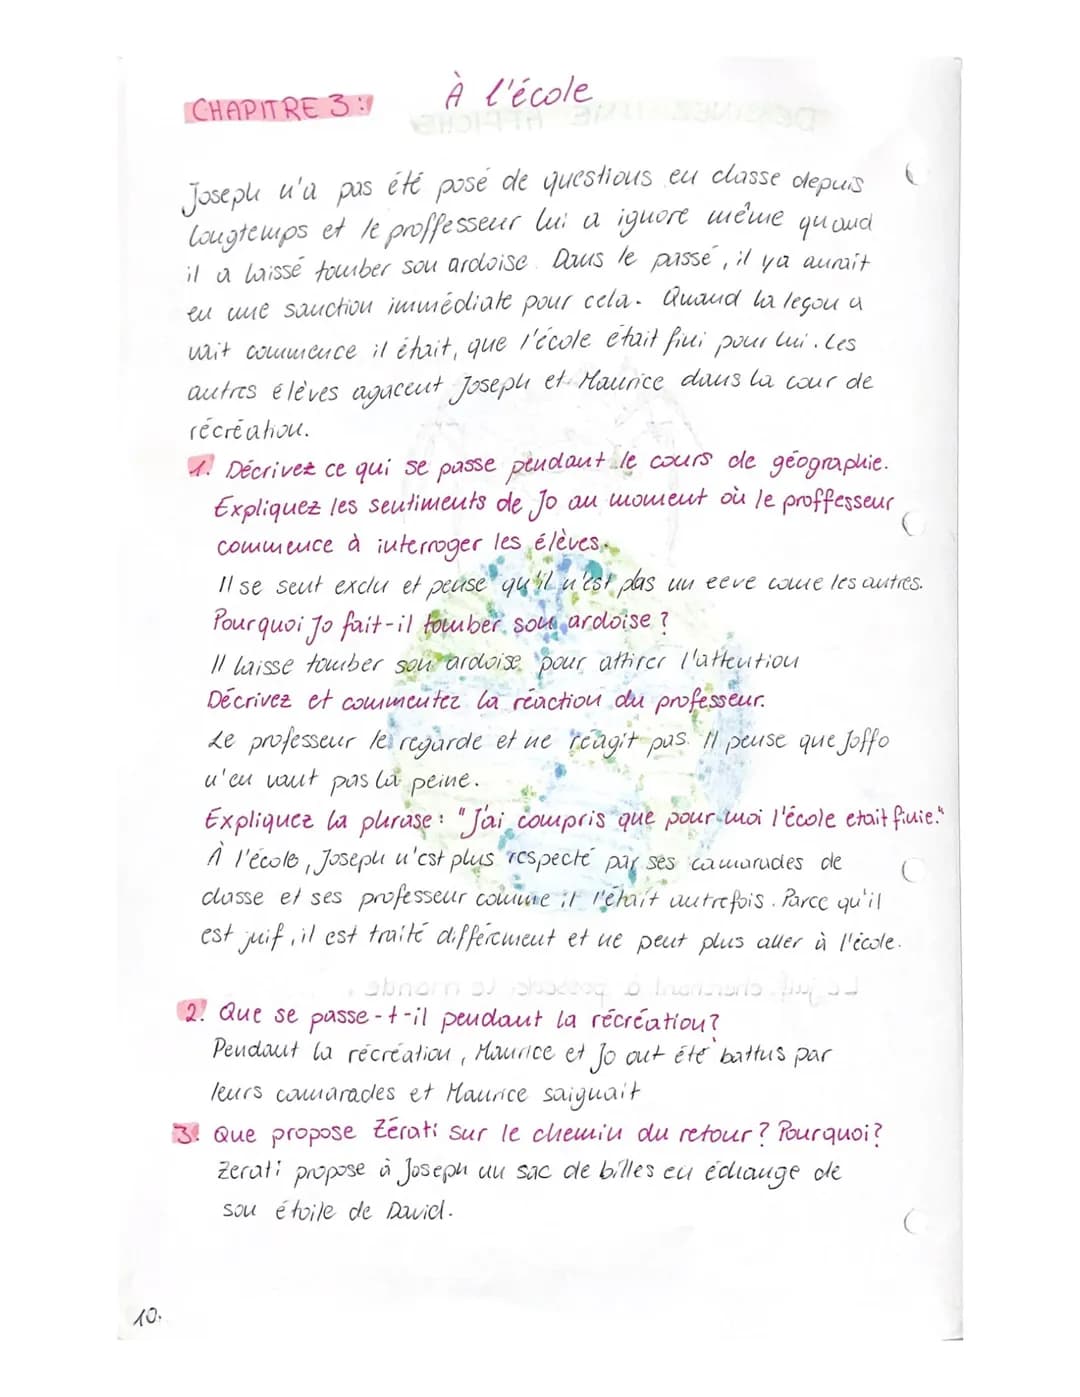 CHAPITRE 3: À l'école
Joseph n'a pas été posé de questions en classe depuis
longtemps et le proffesseur lui a ignoré même quand
il a laissé tomber son ardoise. Dans le passé, il ya aurait
eu une sanction immédiate pour cela. Quand la leçon a
vait commence il était, que l'école était fini pour lui. Les
autres élèves agacent Joseph et Maurice dans la cour de
récréation.
1. Décrivez ce qui se passe pendant le cours de géographie.
Expliquez les sentiments de Jo au moment où le proffesseur
commence à interroger les élèves.
Il se sent exclu et pense qu'il n'est pas un eeve come les autres.
Pourquoi Jo fait-il tomber son ardoise ?
Il laisse tomber son ardoise pour attirer l'attention
Décrivez et commentez la réaction du professeur.
Le professeur le regarde et ne réagit pas. Il pense que Joffo
n'en vaut pas la peine.
Expliquez la phrase : "J'ai compris que pour moi l'école etait finie."
À l'école, Joseph n'est plus respecté par ses camarades de
classe et ses professeur comme il l'était autrefois. Parce qu'il
est juif, il est traité différement et ne peut plus aller à l'école.
2. Que se passe-t-il pendant la récréation?
Pendant la récréation, Maurice et Jo ont été battus par
leurs camarades et Maurice saignait
3. Que propose Zérati sur le chemin du retour? Pourquoi?
Zerati propose à Joseph un sac de billes en échange de
son étoile de David.
10.